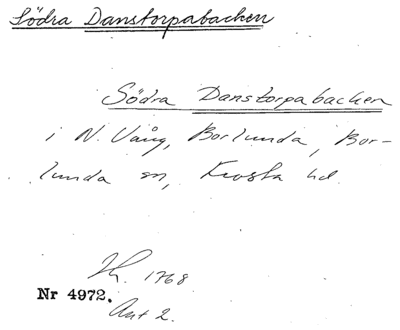 Södra Danstorpabacken
Södra Danstorpabacken
i N. Vång, Borlunda, Bor-
lunda sn, Frosta hd.
1768
Nr 4972.
Akt 2.